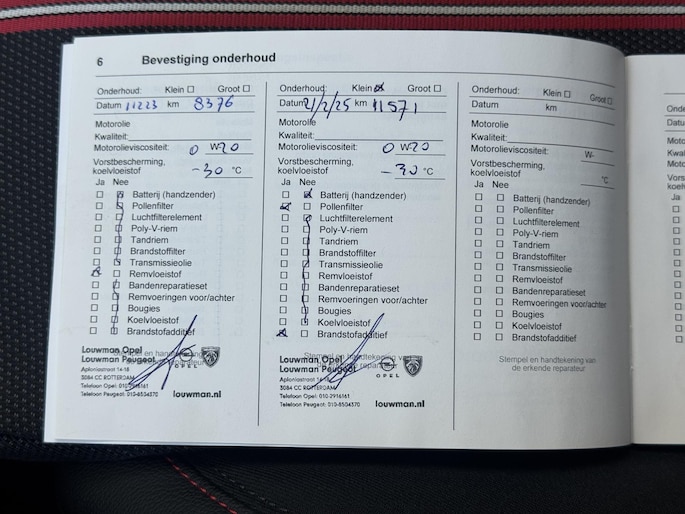 6 Bevestiging onderhoud
Onderhoud: Klein ☐ Groot ☐
Datum 11223 km 8376
Motorolie
Kwaliteit:
Motorolieviscositeit: 0 W-20
Vorstbescherming,
koelvloeistof -30 °C
Ja Nee
Batterij (handzender)
Pollenfilter
Luchtfilterelement
Poly-V-riem
Tandriem
Brandstoffilter
Transmissieolie
Remvloeistof
Bandenreparatieset
Remvoeringen voor/achter
Bougies
Koelvloeistof
Brandstofadditief
Louwman Opel
Louwman Peugeot
Stempel en handtekening
reparateur
Aploniastraat 14-18
3084 CC ROTTERDAM
OPEL
Telefoon Opel: 010-2916161
Telefoon Peugeot: 010-8504370
louwman.nl
Onderhoud: Klein ☒ Groot ☐
Datum 21/2/25 km 11571
Motorolie
Kwaliteit:
Motorolieviscositeit: 0 W-20
Vorstbescherming,
koelvloeistof -30 °C
Ja Nee
Batterij (handzender)
Pollenfilter
Luchtfilterelement
Poly-V-riem
Tandriem
Brandstoffilter
Transmissieolie
Remvloeistof
Bandenreparatieset
Remvoeringen voor/achter
Bougies
Koelvloeistof
Brandstofadditief
Louwman Opel
Louwman Peugeot
Stempel en handtekening van
reparateur
Aploniastraat 14-18
3084 CC ROTTERDAM
OPEL
Telefoon Opel: 010-2916161
Telefoon Peugeot: 010-8504370
louwman.nl
Onderhoud: Klein ☐ Groot ☐
Datum km
Motorolie
Kwaliteit:
Motorolieviscositeit: W-
Vorstbescherming,
koelvloeistof °C
Ja Nee
Batterij (handzender)
Pollenfilter
Luchtfilterelement
Poly-V-riem
Tandriem
Brandstoffilter
Transmissieolie
Remvloeistof
Bandenreparatieset
Remvoeringen voor/achter
Bougies
Koelvloeistof
Brandstofadditief
Stempel en handtekening van
de erkende reparateur